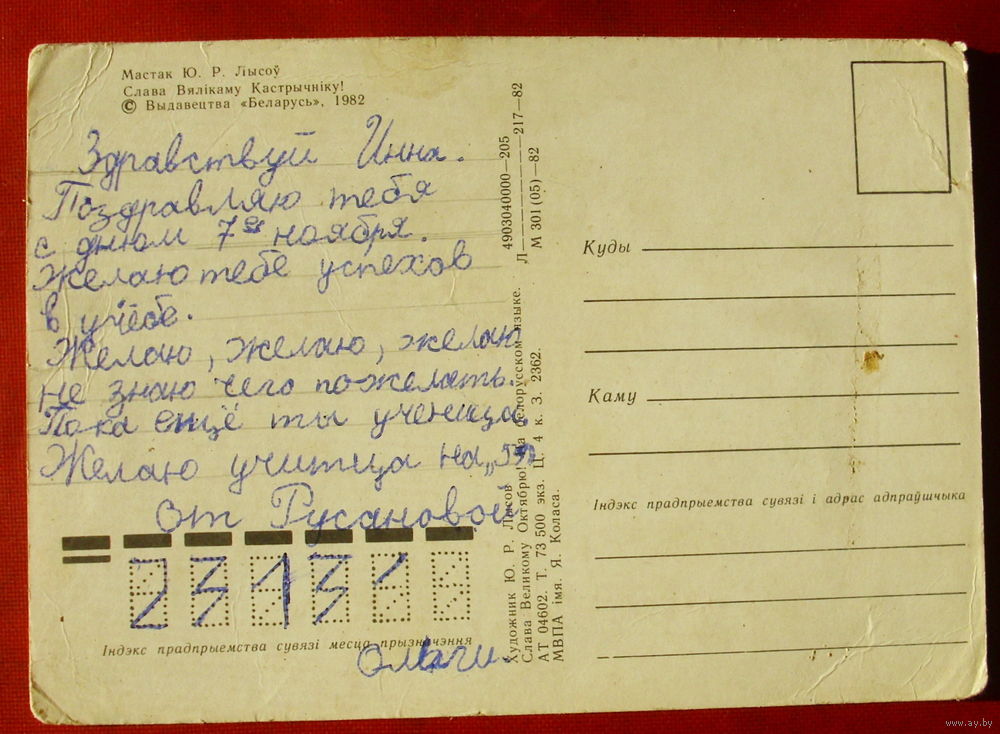 Мастак Ю. Р. Лысоў
Слава Вялікаму Кастрычніку!
© Выдавецтва «Беларусь», 1982
Здравствуй Инна.
Поздравляю тебя
с днюм 7ое ноября.
Желаю тебе успехов
в учёбе.
Желаю, желаю, желаю
не знаю чего пожелать.
Пока ещё ты ученица.
Желаю учитица на „5"
От Русановой
Ольги.
Індэкс прадпрыемства сувязі месца прызначэння
Художник Ю. Р. Лысов
Слава Великому Октябрю! На белорусском языке.
АТ 04602. Т. 73 500 экз. Ц. 4 к. З. 2362.
МВПА імя. Я. Коласа.
4903040000—205
Л—————217—82
М 301(05)—82
Куды
Каму
Індэкс прадпрыемства сувязі і адрас адпраўшчыка
www.ay.by